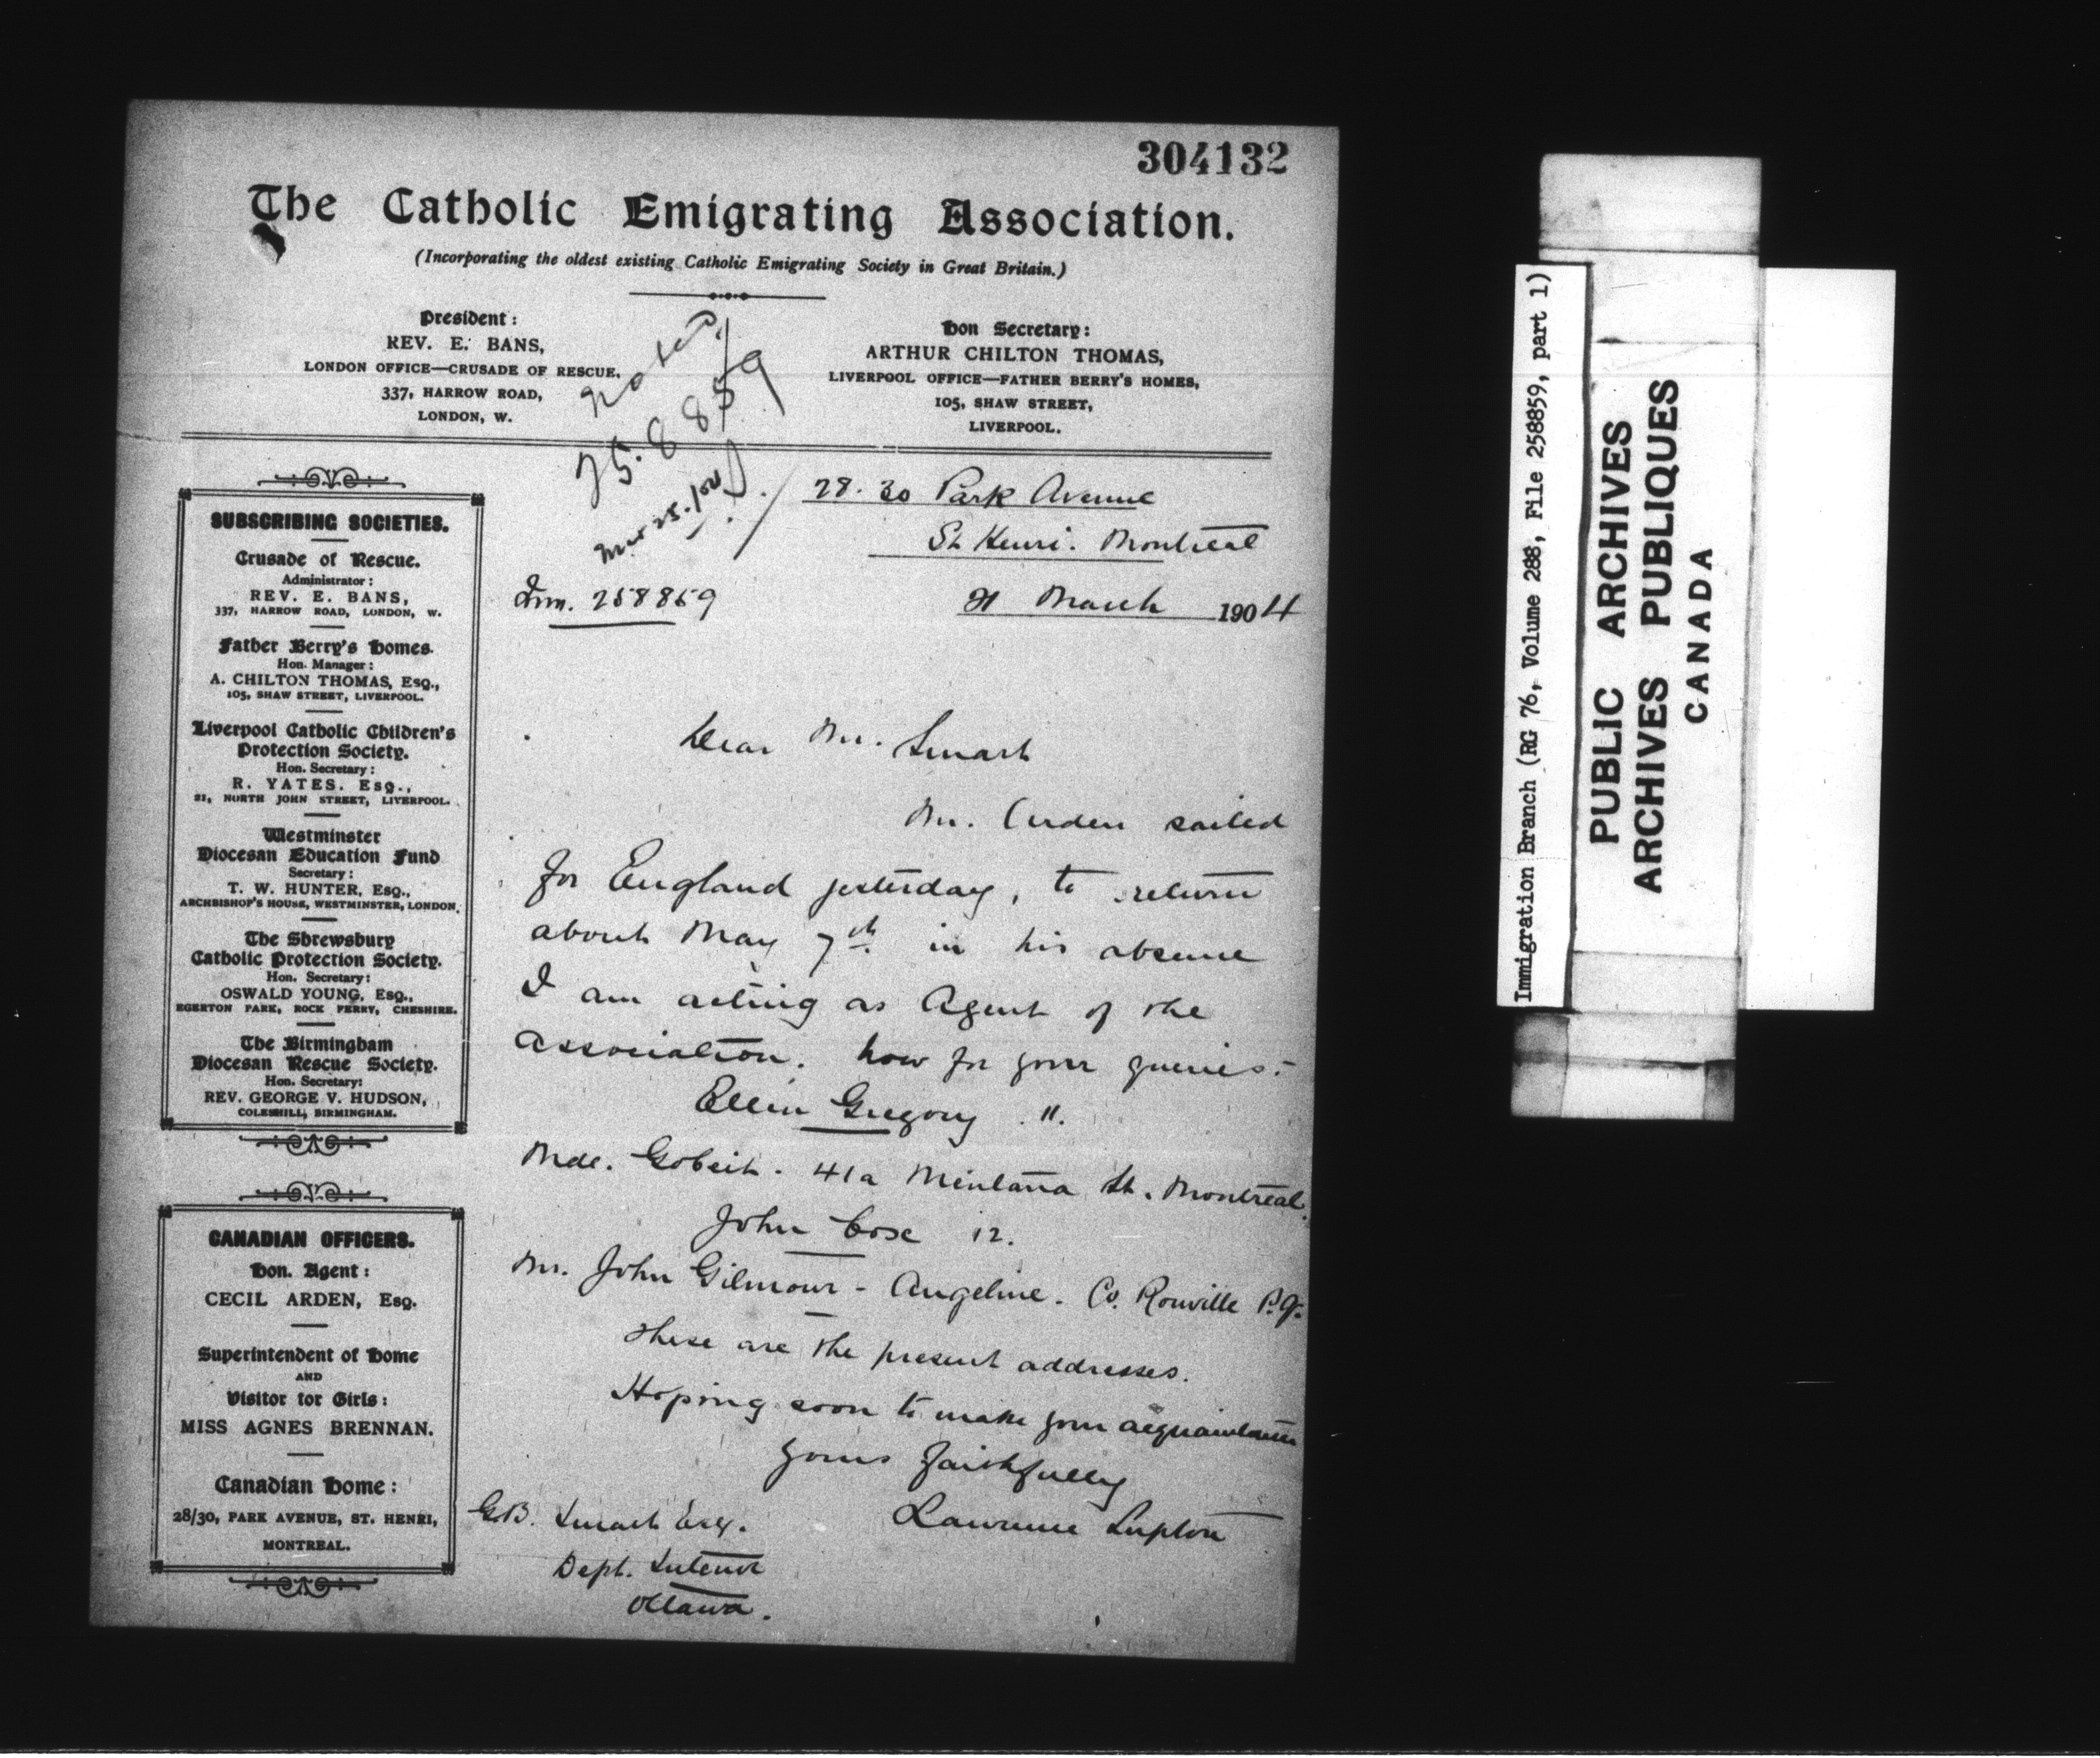 304132
The Catholic Emigrating Association.
(Incorporating the oldest existing Catholic Emigrating Society in Great Britain.)
President:
REV. E. BANS,
LONDON OFFICE—CRUSADE OF RESCUE,
337, HARROW ROAD,
LONDON, W.
Hon Secretary:
ARTHUR CHILTON THOMAS,
LIVERPOOL OFFICE—FATHER BERRY'S HOMES,
105, SHAW STREET,
LIVERPOOL.
Noted
258859
Mar 25/04
28.30 Park Avenue
St Henri. Montreal
Imm. 258859
21 March 1904
SUBSCRIBING SOCIETIES.
Crusade of Rescue.
Administrator:
REV. E. BANS,
337, HARROW ROAD, LONDON, W.
Father Berry's Homes.
Hon. Manager:
A. CHILTON THOMAS, Esq.,
105, SHAW STREET, LIVERPOOL.
Liverpool Catholic Children's
Protection Society.
Hon. Secretary:
R. YATES. Esq.,
21, NORTH JOHN STREET, LIVERPOOL.
Westminster
Diocesan Education Fund
Secretary:
T. W. HUNTER, Esq.,
ARCHBISHOP'S HOUSE, WESTMINSTER, LONDON.
The Shrewsbury
Catholic Protection Society.
Hon. Secretary:
OSWALD YOUNG, Esq.,
EGERTON PARK, ROCK FERRY, CHESHIRE.
The Birmingham
Diocesan Rescue Society.
Hon. Secretary:
REV. GEORGE V. HUDSON,
COLESHILL, BIRMINGHAM.
CANADIAN OFFICERS.
Hon. Agent:
CECIL ARDEN, Esq.
Superintendent of Home
AND
Visitor for Girls:
MISS AGNES BRENNAN.
Canadian Home:
28/30, PARK AVENUE, ST. HENRI,
MONTREAL.
Dear Mr. Smart
Mr. Arden sailed
for England yesterday, to return
about May 7th in his absence
I am acting as Agent of the
Association. Now for your queries:
Ellen Gregory 11.
Mde. Gobeit. 41a Mentana St. Montreal.
John Cose 12.
Mr. John Gilmour - Angeline. Co. Rouville P.Q.
These are the present addresses.
Hoping soon to make your acquaintance
Yours faithfully
Lawrence Lupton
G.B. Smart Esq.
Dept. Interior
Ottawa.
Immigration Branch (RG 76, Volume 288, File 258859, part 1)
PUBLIC ARCHIVES
ARCHIVES PUBLIQUES
CANADA